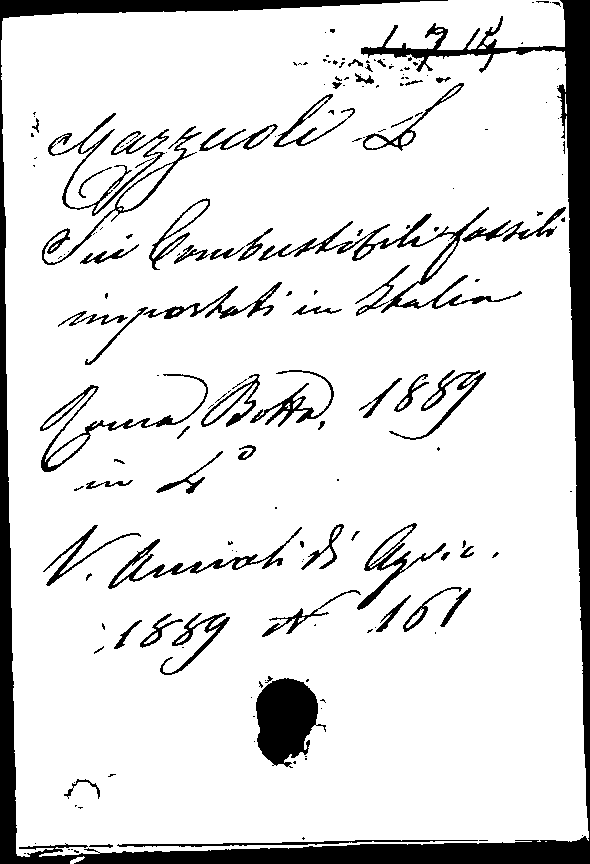 Mazzuoli L
Sui Combustibili fossili
importati in Italia
Roma, Botta, 1889
in 4°
V. Annali di Agric.
1889 N 161